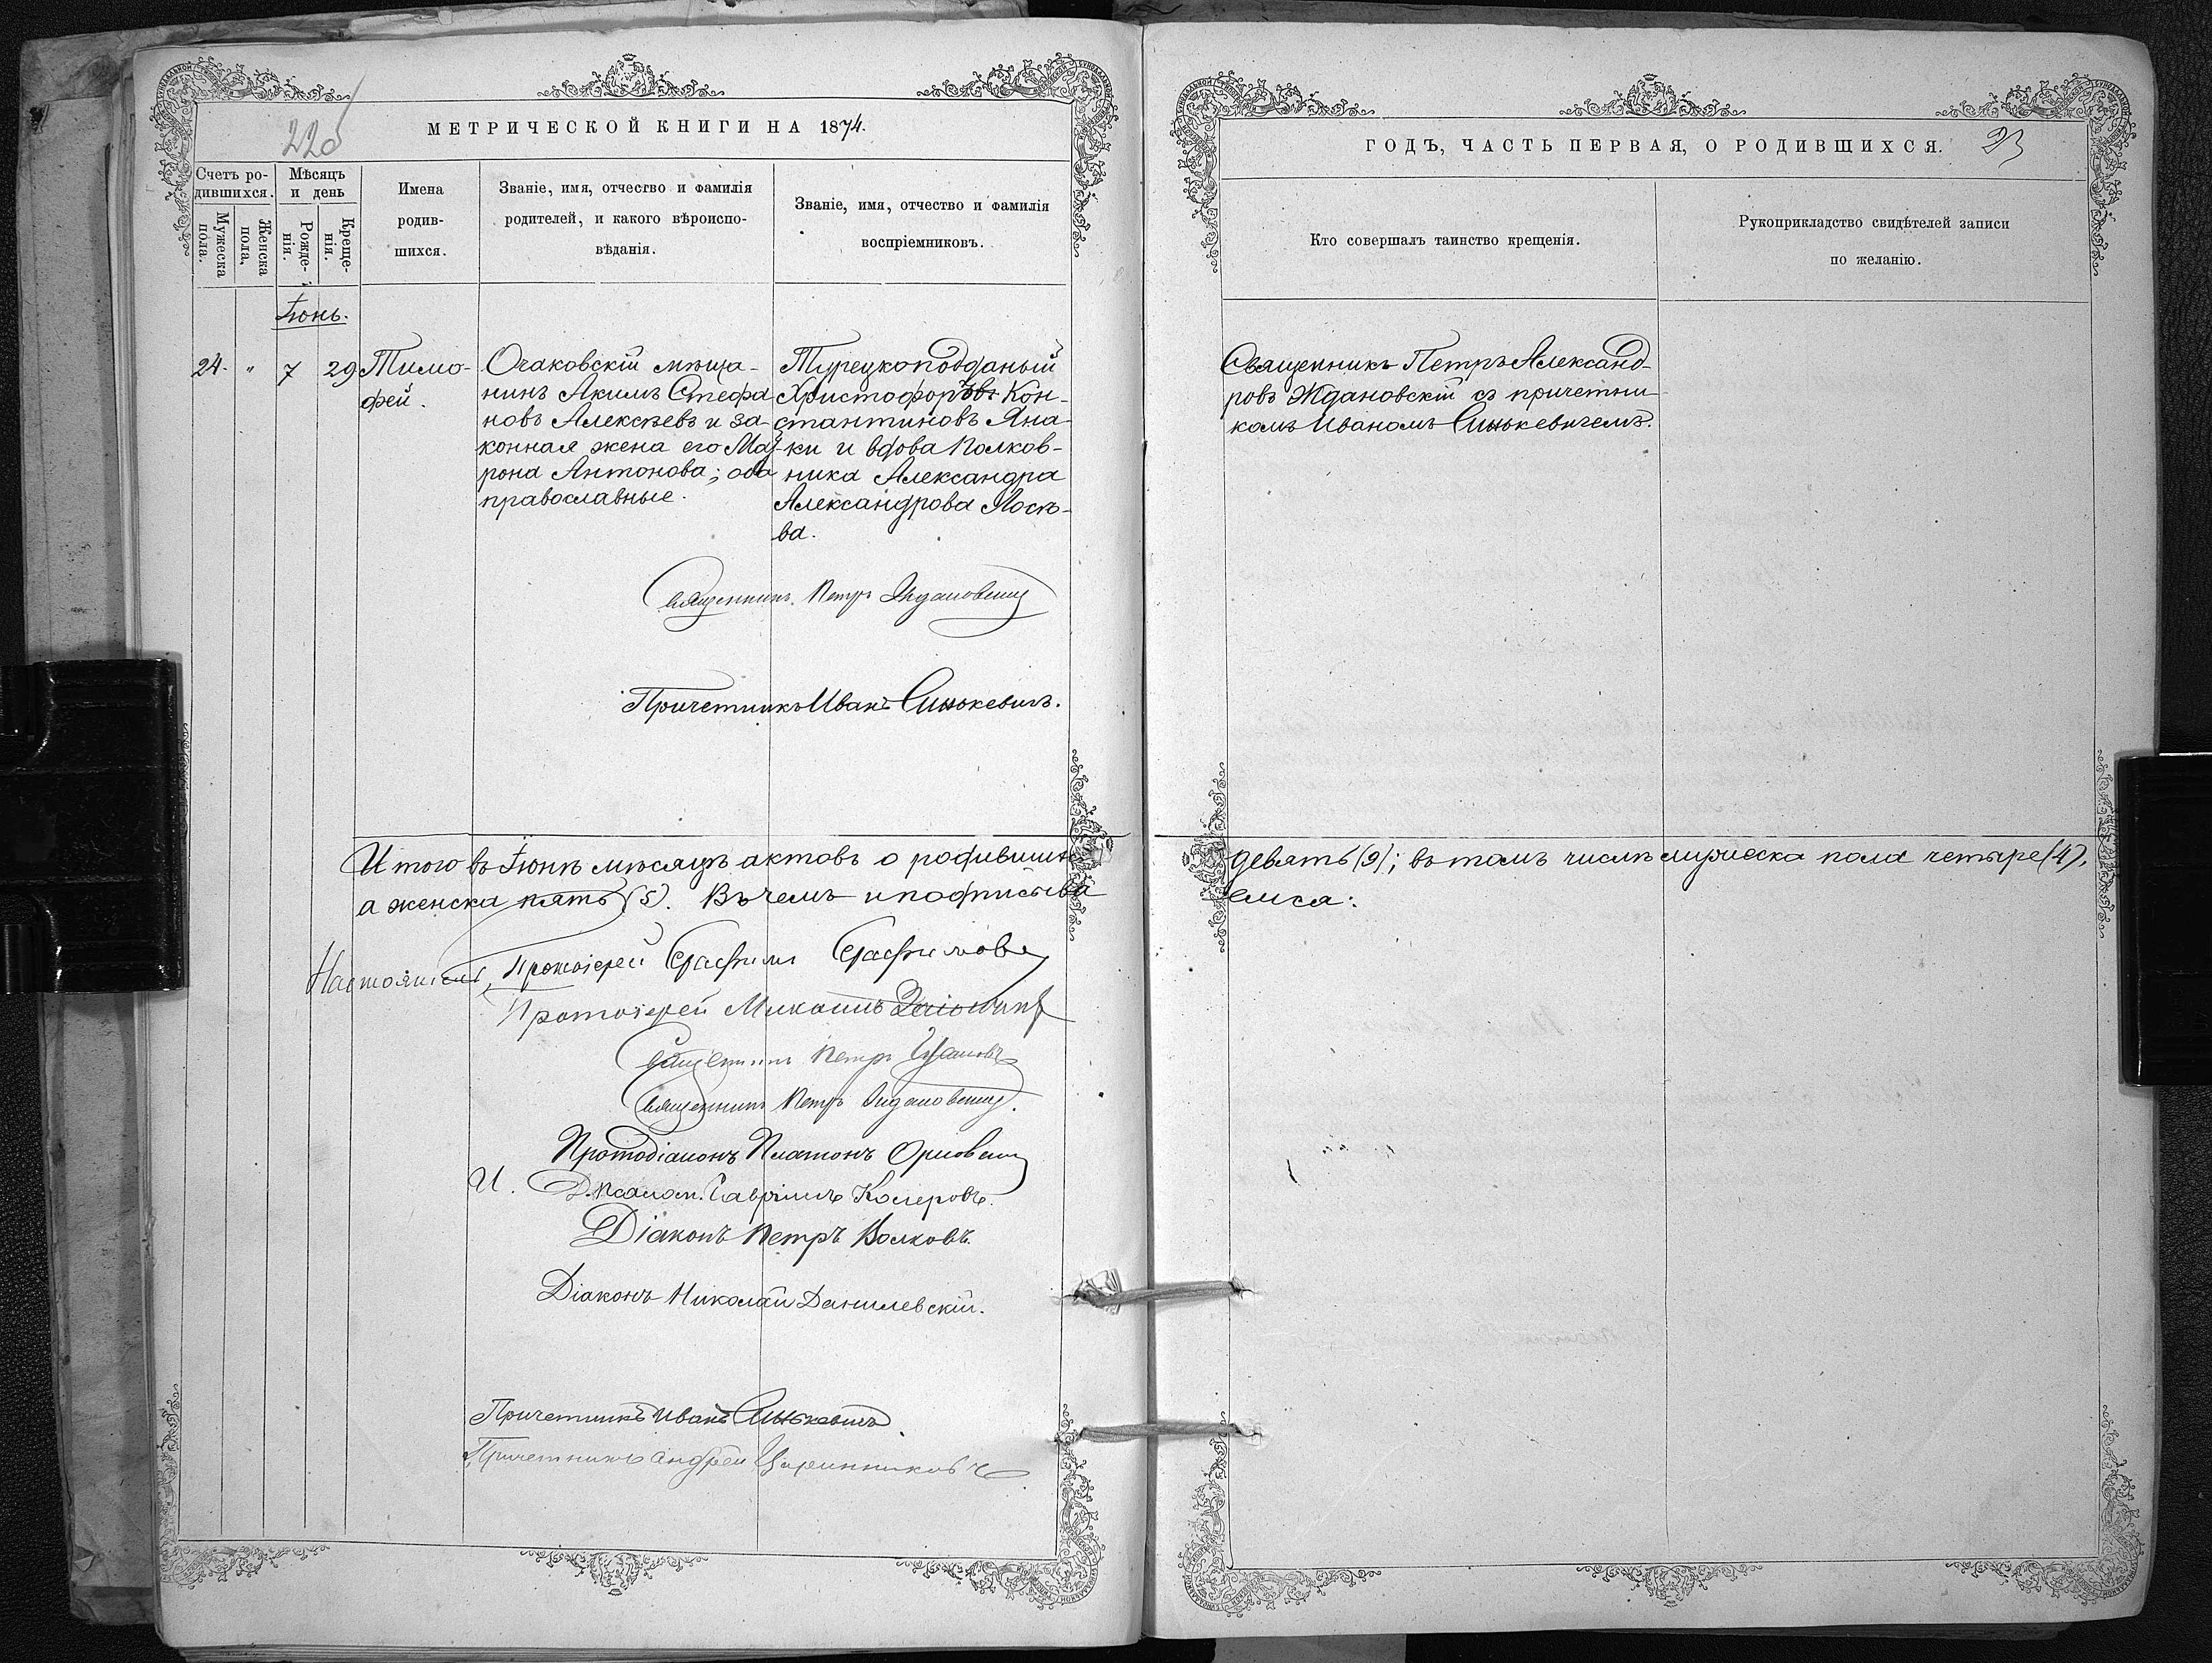 22об
МЕТРИЧЕСКОЙ КНИГИ НА 1874.
Счетъ ро-
дившихся.
Мужеска
пола.
Женска
пола.
Мѣсяцъ
и день
Рожде-
нія.
Креще-
нія.
Имена
родив-
шихся.
Званіе, имя, отчество и фамилія
родителей, и какого вѣроиспо-
вѣданія.
Званіе, имя, отчество и фамилія
воспріемниковъ.
Іюнь.
24. " 7 29
Тимо-
фей.
Очаковскій мѣща-
нинъ Акимъ Стефа
новъ Алексѣевъ и за-
конная жена его Мат
рона Антонова; оба
православные.
Турецкоподданый
Христофоръ Кон-
стантиновъ Яна-
ки и вдова Полков-
ника Александра
Александрова Лосе-
ва.
Священникъ Петръ Ждановскій
Причетникъ Иванъ Синькевичъ.
Итого въ Іюнѣ мѣсяцѣ актовъ о родившихся
а женска пять (5). Въ чемъ и подписыва
Настоятель, Протоіерей Серафимъ Серафимовъ
Протоіерей Михаилъ
Священникъ Петръ
Священникъ Петръ Ждановскій.
Протодіаконъ Платонъ Орловскій
И. Д. Псалом. Гавріилъ Колеровъ.
Діаконъ Петръ Волковъ.
Діаконъ Николай Данилевскій.
Причетникъ Иванъ Синькевичъ
Причетникъ Андрей
ГОДЪ, ЧАСТЬ ПЕРВАЯ, О РОДИВШИХСЯ. 23
Кто совершалъ таинство крещенія.
Рукоприкладство свидѣтелей записи
по желанію.
Священникъ Петръ Александ-
ровъ Ждановскій съ причетни-
комъ Иваномъ Синькевичемъ.
девять (9); въ томъ числѣ мужеска пола четыре (4),
емся: